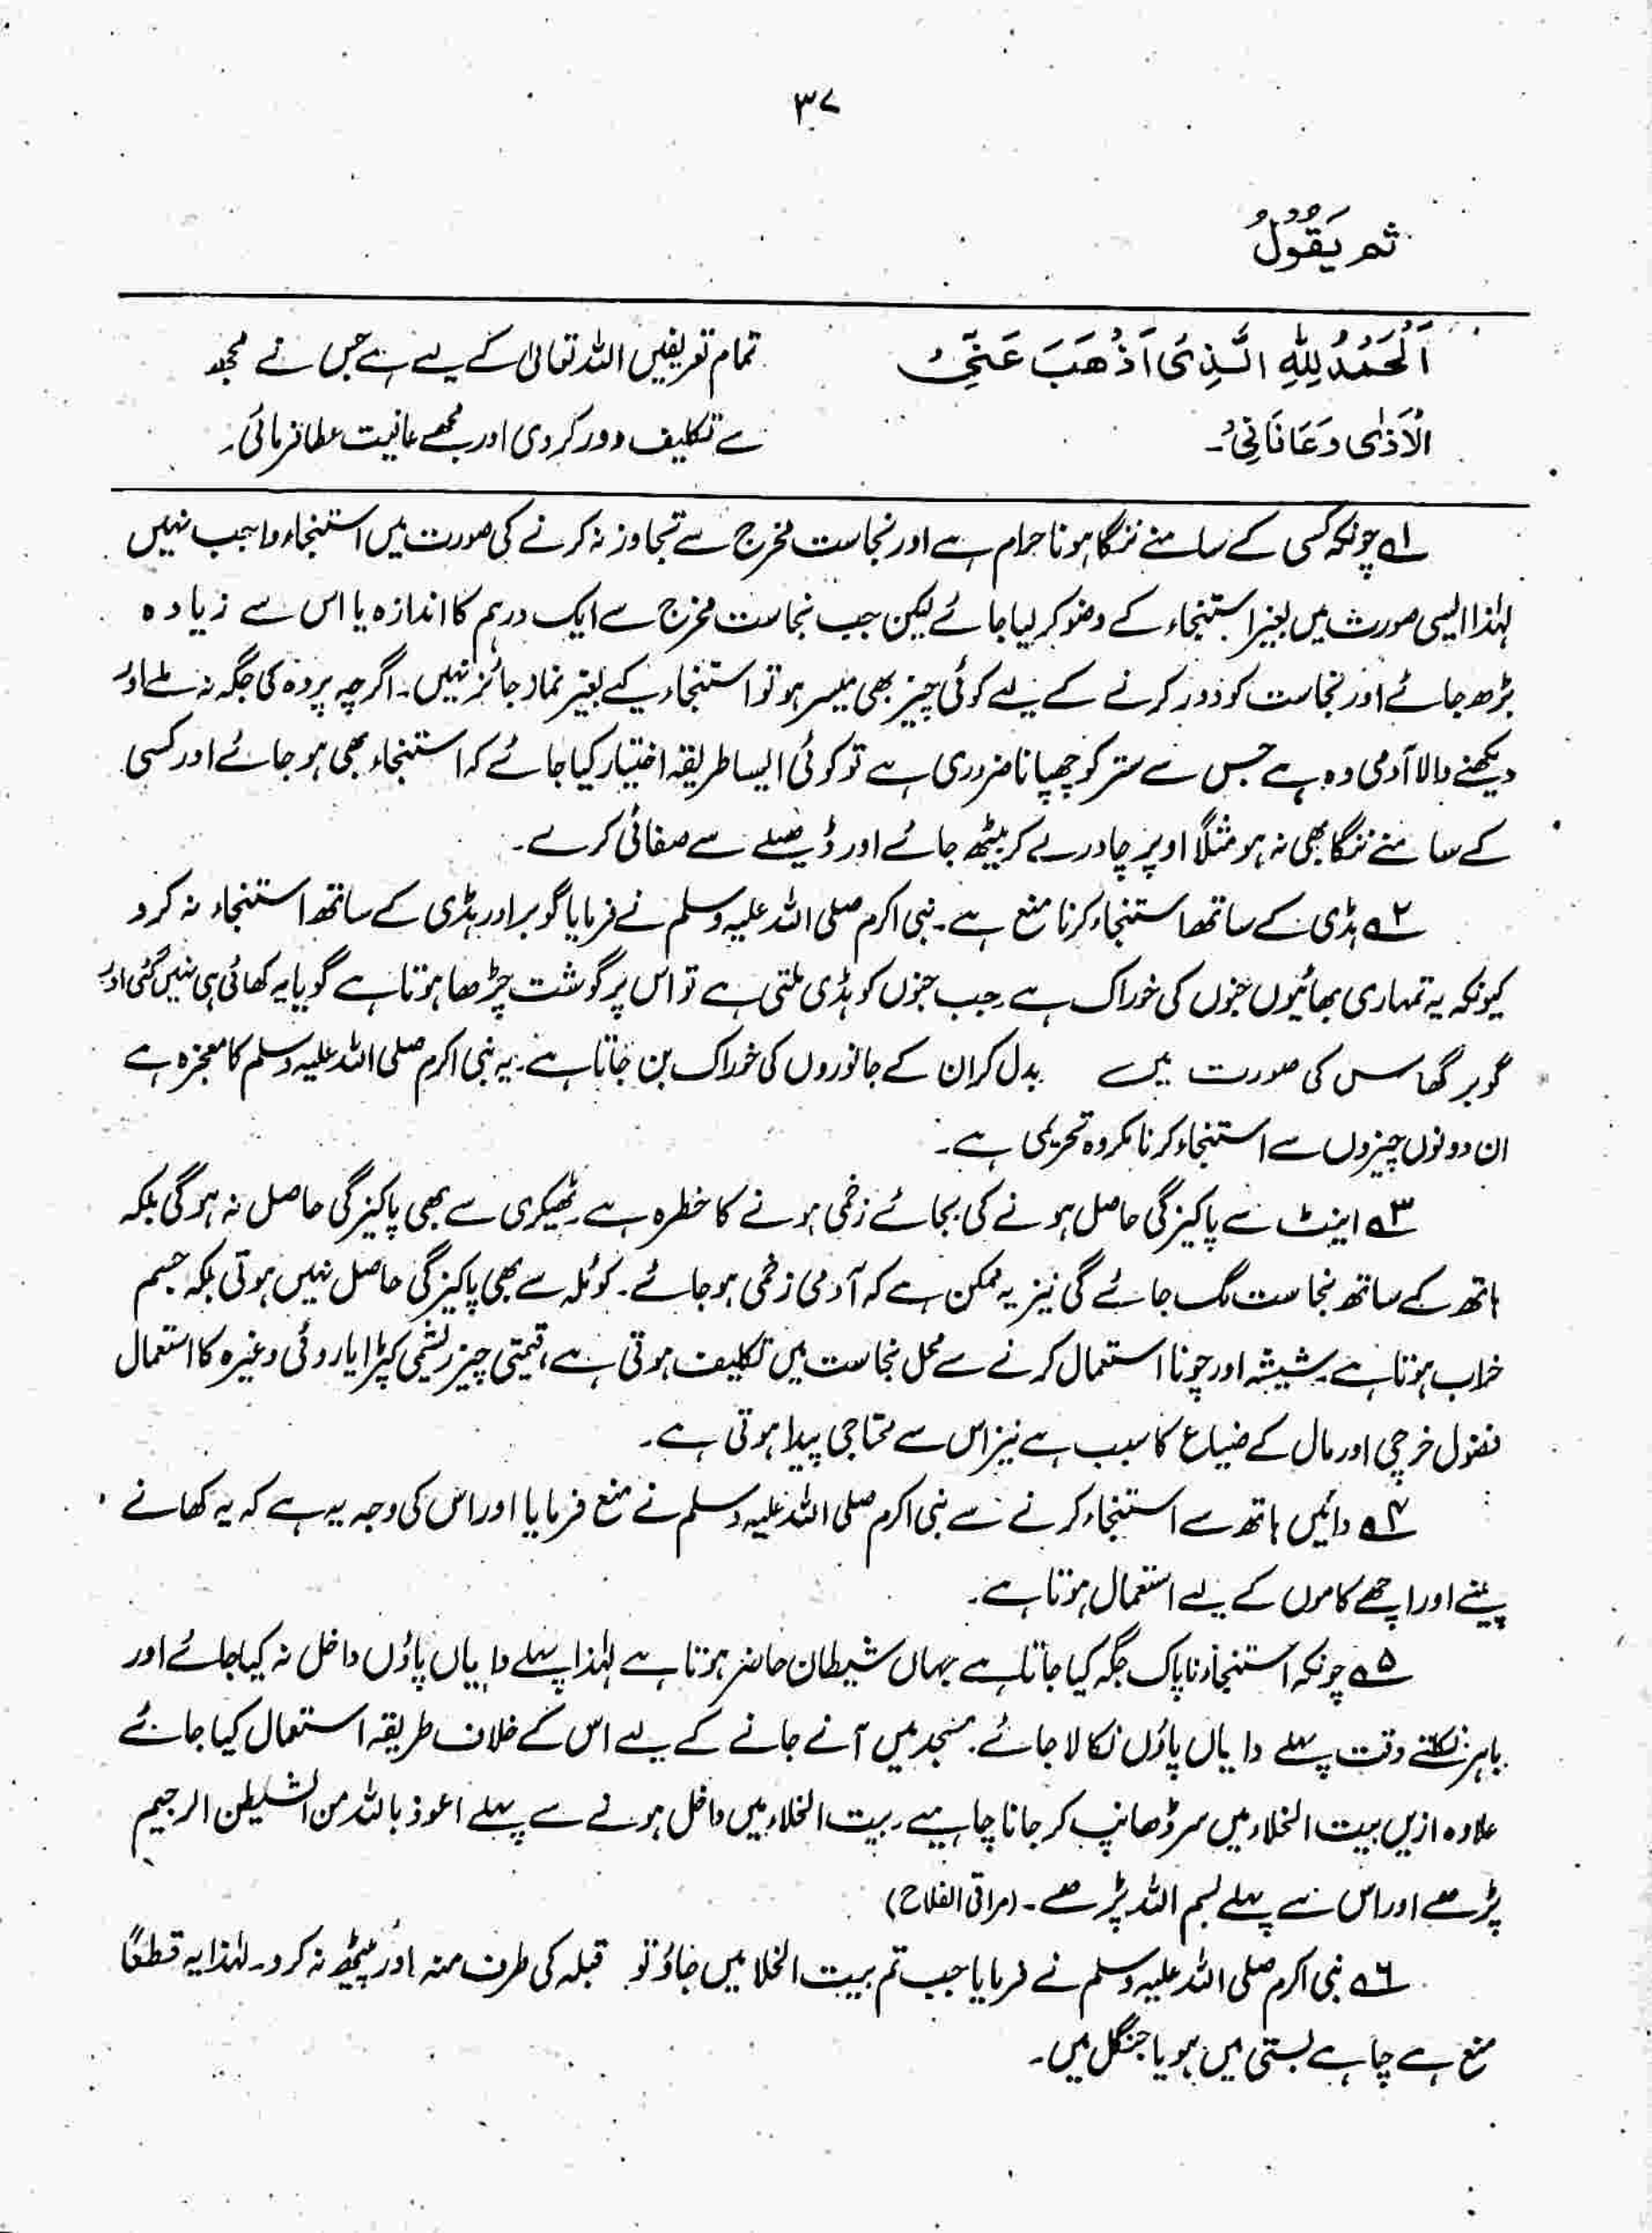 ۳۷
ثم يَقُوْلُ
اَلْحَمْدُ لِلّٰهِ الَّذِیْ اَذْهَبَ عَنِّیْ
الْاَذٰی وَعَافَانِیْ۔
تمام تعریفیں اللہ تعالیٰ کے لیے ہے جس نے مجھ
سے تکلیف دور کر دی اور مجھے عافیت عطا فرمائی۔
۱؎ چونکہ کسی کے سامنے ننگا ہونا حرام ہے اور نجاست مخرج سے تجاوز نہ کرنے کی صورت میں استنجاء واجب نہیں
لہٰذا ایسی صورت میں بغیر استنجاء کے وضو کر لیا جائے لیکن جب نجاست مخرج سے ایک درہم کا اندازہ یا اس سے زیادہ
بڑھ جائے اور نجاست کو دور کرنے کے لیے کوئی چیز بھی میسر ہو تو استنجاء کے بغیر نماز جائز نہیں۔ اگرچہ پردہ کی جگہ نہ ملے اور
دیکھنے والا آدمی وہ ہے جس سے ستر کو چھپانا ضروری ہے تو کوئی ایسا طریقہ اختیار کیا جائے کہ استنجاء بھی ہو جائے اور کسی
کے سامنے ننگا بھی نہ ہو مثلًا اوپر چادر لے کر بیٹھ جائے اور ڈھیلے سے صفائی کرے۔
۲؎ ہڈی کے ساتھ استنجاء کرنا منع ہے۔ نبی اکرم صلی اللہ علیہ وسلم نے فرمایا گوبر اور ہڈی کے ساتھ استنجاء نہ کرو
کیونکہ یہ تمہاری بھائیوں جنوں کی خوراک ہے۔ جب جنوں کو ہڈی ملتی ہے تو اس پر گوشت چڑھا ہوتا ہے گویا یہ کھائی ہی نہیں گئی اور
گوبر گھاس کی صورت میں بدل کر ان کے جانوروں کی خوراک بن جاتا ہے۔ یہ نبی اکرم صلی اللہ علیہ وسلم کا معجزہ ہے
ان دونوں چیزوں سے استنجاء کرنا مکروہ تحریمی ہے۔
۳؎ اینٹ سے پاکیزگی حاصل ہونے کی بجائے زخمی ہونے کا خطرہ ہے۔ ٹھیکری سے بھی پاکیزگی حاصل نہ ہوگی بلکہ
ہاتھ کے ساتھ نجاست لگ جائے گی نیز یہ ممکن ہے کہ آدمی زخمی ہو جائے۔ کوئلہ سے بھی پاکیزگی حاصل نہیں ہوتی بلکہ جسم
خراب ہوتا ہے۔ شیشہ اور چونا استعمال کرنے سے محل نجاست میں تکلیف ہوتی ہے، قیمتی چیز ریشمی کپڑا یا روئی وغیرہ کا استعمال
فضول خرچی اور مال کے ضیاع کا سبب ہے نیز اس سے محتاجی پیدا ہوتی ہے۔
۴؎ دائیں ہاتھ سے استنجاء کرنے سے نبی اکرم صلی اللہ علیہ وسلم نے منع فرمایا اور اس کی وجہ یہ ہے کہ یہ کھانے
پینے اور اچھے کاموں کے لیے استعمال ہوتا ہے۔
۵؎ چونکہ استنجاء ناپاک جگہ کیا جاتا ہے یہاں شیطان حاضر ہوتا ہے لہٰذا پہلے دایاں پاؤں داخل نہ کیا جائے اور
باہر نکلتے وقت پہلے دایاں پاؤں نکالا جائے۔ مسجد میں آنے جانے کے لیے اس کے خلاف طریقہ استعمال کیا جائے
علاوہ ازیں بیت الخلاء میں سر ڈھانپ کر جانا چاہیے۔ بیت الخلاء میں داخل ہونے سے پہلے اعوذ باللہ من الشیطن الرجیم
پڑھے اور اس سے پہلے بسم اللہ پڑھے۔ (مراقی الفلاح)
۶؎ نبی اکرم صلی اللہ علیہ وسلم نے فرمایا جب تم بیت الخلا میں جاؤ تو قبلہ کی طرف منہ اور پیٹھ نہ کرو۔ لہٰذا یہ قطعًا
منع ہے چاہے بستی میں ہو یا جنگل میں۔